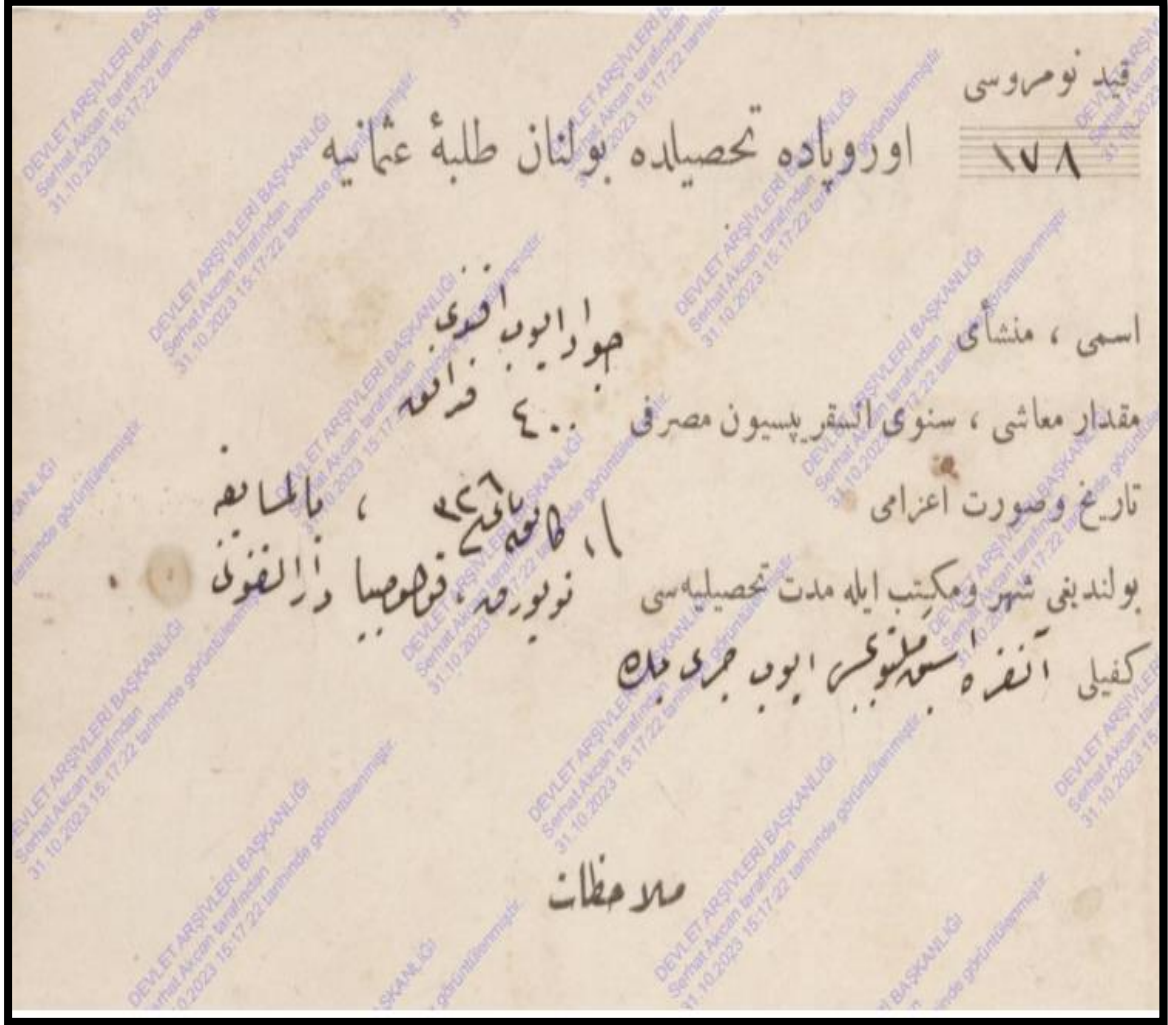 قيد نومروسی
١٧٨
اوروپاده تحصيلده بولنان طلبهٔ عثمانيه
اسمی ، منشأی جواد ايوب افندی
مقدار معاشی ، سنوی انسقريپسيون مصرفی ٤٠٠ فرانق
تاريخ وصورت اعزامی ١١ كانون ٣٢٦ ، بالمسابقه
بولنديغی شهر ومكتب ايله مدت تحصيليه‌سی نويورق ، قولومبيا دار الفنونی
كفيلی آنقره ايوب صبری بك
ملاحظات
DEVLET ARŞİVLERİ BAŞKANLIĞI
Serhat Akcan tarafından
31.10.2023 15:17:22 tarihinde görüntülenmiştir.